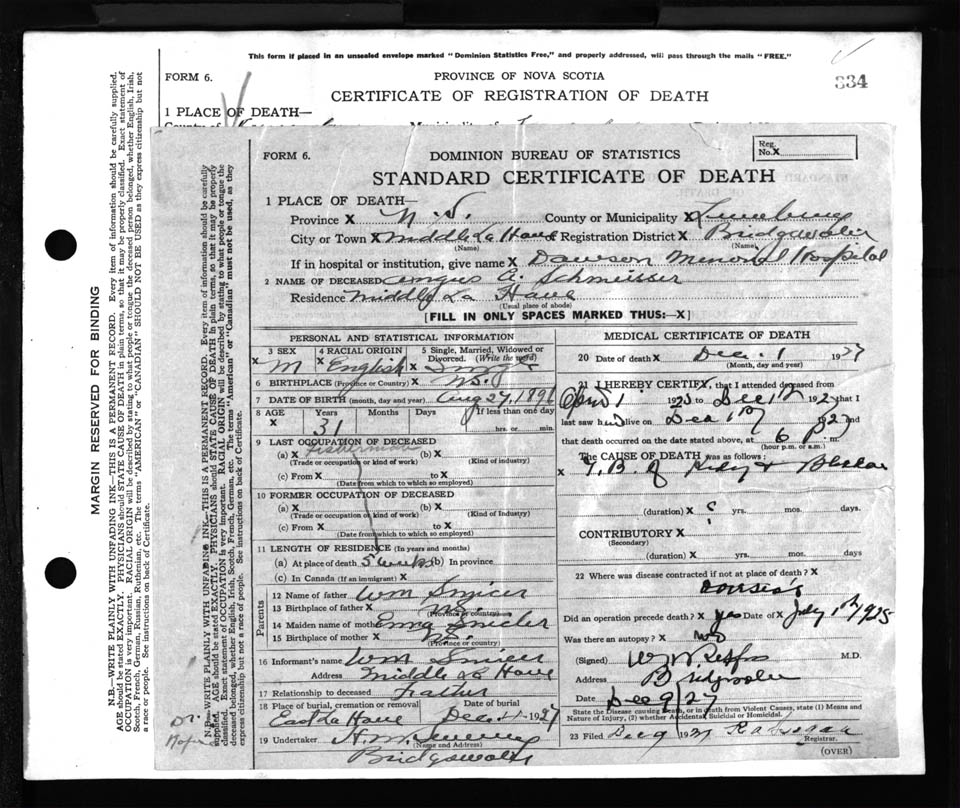 This form if placed in an unsealed envelope marked "Dominion Statistics Free," and properly addressed, will pass through the mails "FREE."
FORM 6.
PROVINCE OF NOVA SCOTIA
334
CERTIFICATE OF REGISTRATION OF DEATH
1 PLACE OF DEATH—
MARGIN RESERVED FOR BINDING
N.B.—WRITE PLAINLY WITH UNFADING INK—THIS IS A PERMANENT RECORD. Every item of information should be carefully supplied.
AGE should be stated EXACTLY. PHYSICIANS should STATE CAUSE OF DEATH in plain terms, so that it may be properly classified. Exact statement of
OCCUPATION is very important. RACIAL ORIGIN will be described by stating to what people or tongue the deceased person belonged, whether English, Irish,
Scotch, French, German, Russian, Ruthenian, etc. The terms "AMERICAN" or "CANADIAN" SHOULD NOT BE USED as they express citizenship but not
a race or people. See instructions on back of Certificate.
N.B.—WRITE PLAINLY WITH UNFADING INK—THIS IS A PERMANENT RECORD. Every item of information should be carefully
supplied. AGE should be stated EXACTLY. PHYSICIANS should STATE CAUSE OF DEATH in plain terms, so that it may be properly
classified. Exact statement of OCCUPATION is very important. RACIAL ORIGIN will be described by stating to what people or tongue the
deceased belonged, whether English, Irish, Scotch, French, German, etc. The terms "American" or "Canadian" must not be used, as they
express citizenship but not a race of people. See instructions on back of Certificate.
FORM 6.
DOMINION BUREAU OF STATISTICS
Reg. No. X
STANDARD CERTIFICATE OF DEATH
1 PLACE OF DEATH—
Province X N.S. County or Municipality X Lunenburg
City or Town X Middle La Have of Registration District X Bridgewater
(Name) (Name)
If in hospital or institution, give name X Dawson Memorial Hospital
2 NAME OF DECEASED Angus A. Schmeisser
Residence Middle La Have
(Usual place of abode)
[FILL IN ONLY SPACES MARKED THUS:—X]
PERSONAL AND STATISTICAL INFORMATION
3 SEX X M
4 RACIAL ORIGIN X English
5 Single, Married, Widowed or Divorced. (Write the word) X Single
6 BIRTHPLACE (Province or Country) X N.S.
7 DATE OF BIRTH (month, day and year) Aug 27, 1896
8 AGE X Years 31 Months Days If less than one day hrs. or min.
9 LAST OCCUPATION OF DECEASED
(a) X fisherman (b) X
(Trade or occupation or kind of work) (Kind of industry)
(c) From X to X
(Date from which to which so employed)
10 FORMER OCCUPATION OF DECEASED
(a) X (b) X
(Trade or occupation or kind of work) (Kind of Industry)
(c) From X to X
(Date from which to which so employed)
11 LENGTH OF RESIDENCE (In years and months)
(a) At place of death 5 weeks (b) In province
(c) In Canada (If an immigrant) X
Parents
12 Name of father X Wm Smicer
13 Birthplace of father X N.S.
(Province or country)
14 Maiden name of mother Emma
15 Birthplace of mother X N.S.
(Province or country)
16 Informant's name Wm Smicer
Address Middle La Have
17 Relationship to deceased Father
18 Place of burial, cremation or removal Date of burial
East La Have Dec 1927
19 Undertaker
(Name and Address)
Bridgewater
MEDICAL CERTIFICATE OF DEATH
20 Date of death X Dec. 1 1927
(Month, day and year)
21 I HEREBY CERTIFY, that I attended deceased from
April 1 1925 to Dec 1st 1927 that I
last saw him live on Dec 1st 1927 and
that death occurred on the date stated above, at 6 P. m.
(hour p.m. or a.m.)
The CAUSE OF DEATH was as follows:
X T.B. of Kidney + Bladder
(duration) X ? yrs. mos. days
CONTRIBUTORY X
(Secondary)
(duration) X yrs. mos. days
22 Where was disease contracted if not at place of death? X
Did an operation precede death? X yes Date of X July 1st 1925
Was there an autopsy? X no
(Signed) M.D.
Address Bridgewater
Date Dec 9/27
State the Disease causing Death, or in death from Violent Causes, state (1) Means and Nature of Injury, (2) whether Accidental, Suicidal or Homicidal.
23 Filed Dec 9 1927
Registrar.
(OVER)
Dr.